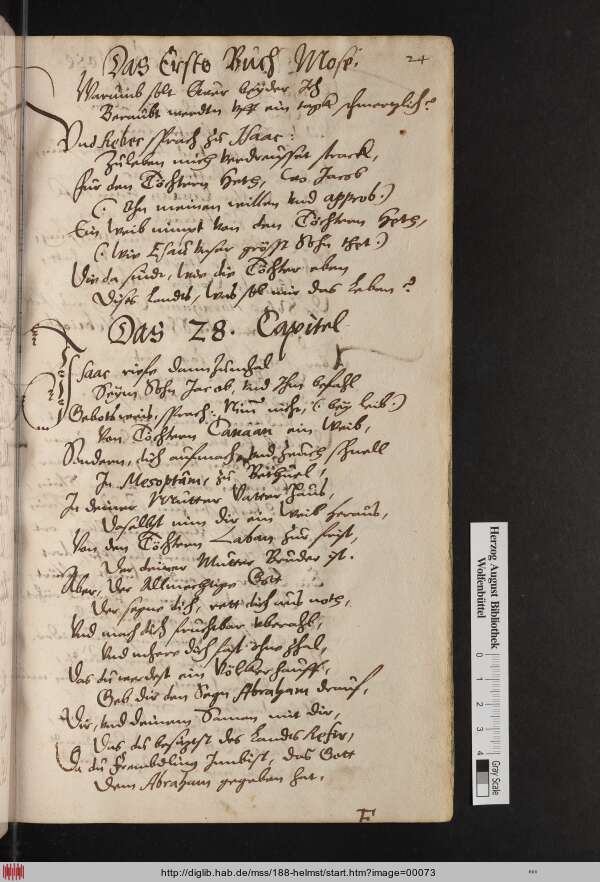 Das Erste Buch Mose.
24
Warumb solt Euer beyder Ich
Beraubt werdten uff ein tagk schmertzlich?
Und Rebec sprach zu Isaac:
Zuleben mich verdreusset starck,
für den Töchtern Heth, wo Jacob
(: Ohn meinen willen und approb.)
Ein Weib nimpt von den Töchtern Heth,
(: Wie Esau unser gröste Sohn thet:)
Wie da sindt, wie die Töchter eben
Dises Landes, was sol mir das Leben?
Das 28. Capitel
Isaac riefe dann zumhal
Seym Sohn Jacob, und Ihm befahl
Gebots weis, sprach: Nim nicht, (: bey leib:)
Von Töchtern Canaan ein Weib,
Sondern, dich aufmach, und zeuch schnell
In Mesoptam, zu Bethuel,
In deiner Mutter Vatter Haus,
Daselbst nim dir ein Weib heraus,
Von den Töchtern Laban zur frist,
Der deiner Mutter Bruder ist.
Aber, der Allmechtige Gott
Der segne dich, rett dich aus noth,
Und mach dich fruchtbar uberahl,
Und mehere dich fast ohne zhal,
Das du werdest ein Völkerhauff,
Geb dir den Segn Abraham drauf,
Dir, und deinem Samen mit dir,
Das du besitzest des Landes Refir,
Da du Frembdling Innbist, das Gott
Dem Abraham gegeben hat.
F
Herzog August Bibliothek
Wolfenbüttel
0 1 2 3 4
Gray Scale
http://diglib.hab.de/mss/188-helmst/start.htm?image=00073